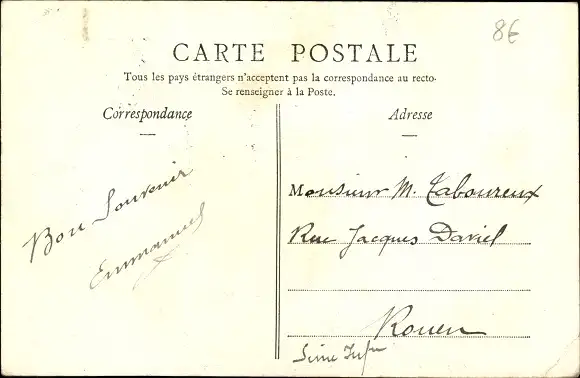 8€
CARTE POSTALE
Tous les pays étrangers n'acceptent pas la correspondance au recto-
Se renseigner à la Poste.
Correspondance
Adresse
Bon Souvenir
Emmanuel
Monsieur M. Taboureux
Rue Jacques Daviel
Rouen
Seine Infre